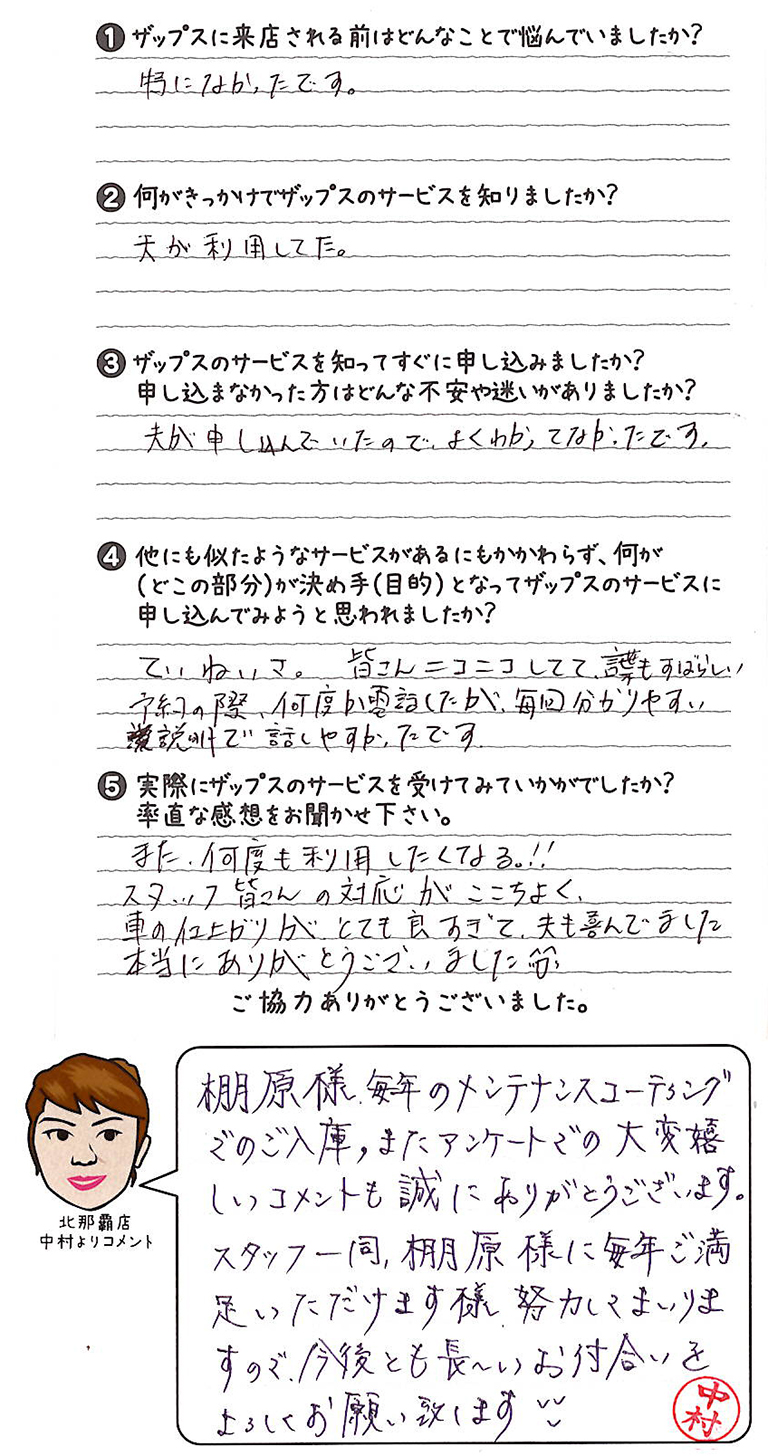 ① ザップスに来店される前はどんなことで悩んでいましたか?
特になかったです。
② 何がきっかけでザップスのサービスを知りましたか?
夫が利用してた。
③ ザップスのサービスを知ってすぐに申し込みましたか?
申し込まなかった方はどんな不安や迷いがありましたか?
夫が申し込んでいたので、よくわかってなかったです。
④ 他にも似たようなサービスがあるにもかかわらず、何が
(どこの部分)が決め手(目的)となってザップスのサービスに
申し込んでみようと思われましたか?
ていねいさ。 皆さんニコニコしてて、言葉もすばらしい
予約の際、何度か電話したが、毎回分かりやすい
説明で話しやすかったです。
⑤ 実際にザップスのサービスを受けてみていかがでしたか?
率直な感想をお聞かせ下さい。
また、何度も利用したくなる。!!
スタッフ皆さんの対応がここちよく、
車の仕上がりが、とても良すぎて、夫も喜んでました
本当にありがとうございました
ご協力ありがとうございました。
棚原様、毎年のメンテナンスコーティング
でのご入庫、またアンケートでの大変嬉
しいコメントも誠にありがとうございます。
スタッフ一同、棚原様に毎年ご満
足いただけます様、努力してまいりま
すので、今後とも長〜いお付合いを
よろしくお願い致します
北那覇店
中村よりコメント
中村